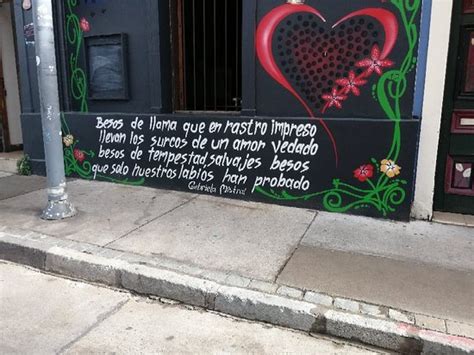 Besos de llama que en rastro impreso
llevan los surcos de un amor vedado
besos de tempestad, salvajes besos
que solo nuestros labios han probado
Gabriela Mistral